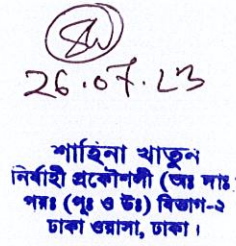 26.07.23
শাহিনা খাতুন
নির্বাহী প্রকৌশলী (অঃ দাঃ
পরঃ (পূঃ ও উঃ) বিভাগ-২
ঢাকা ওয়াসা, ঢাকা।